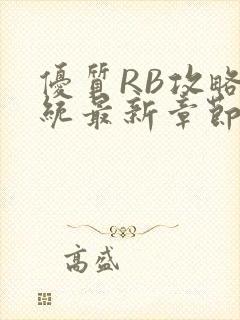 優質RB攻略
統最新章節
高盛